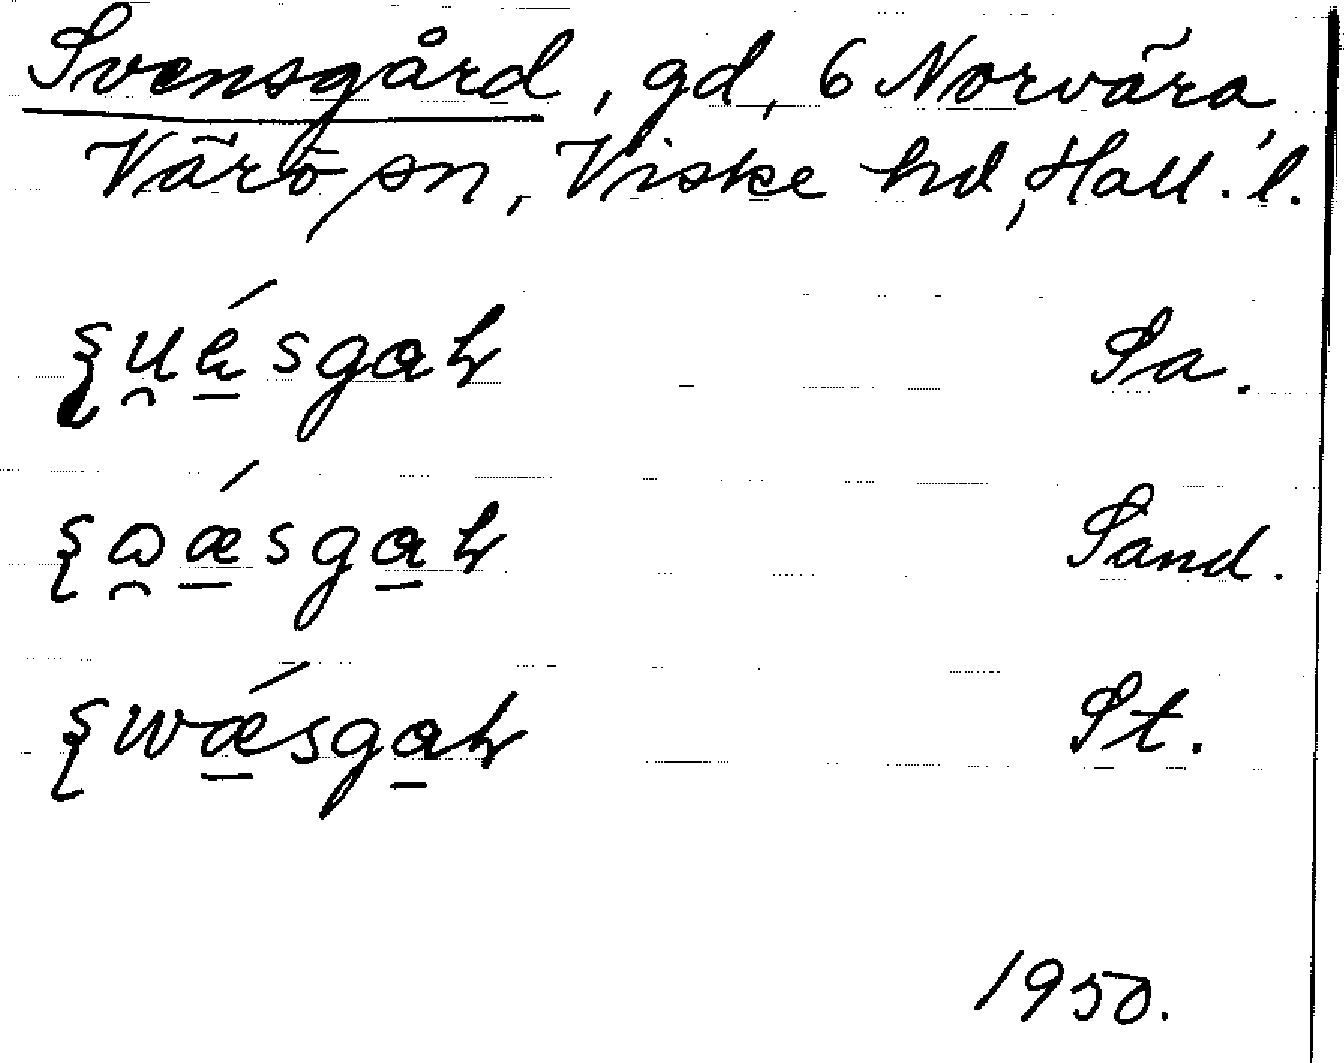 Svensgård, gd, 6 Norvära
Värö sn, Viske hd, Hall. l.
Sa.
Sand.
St.
1950.